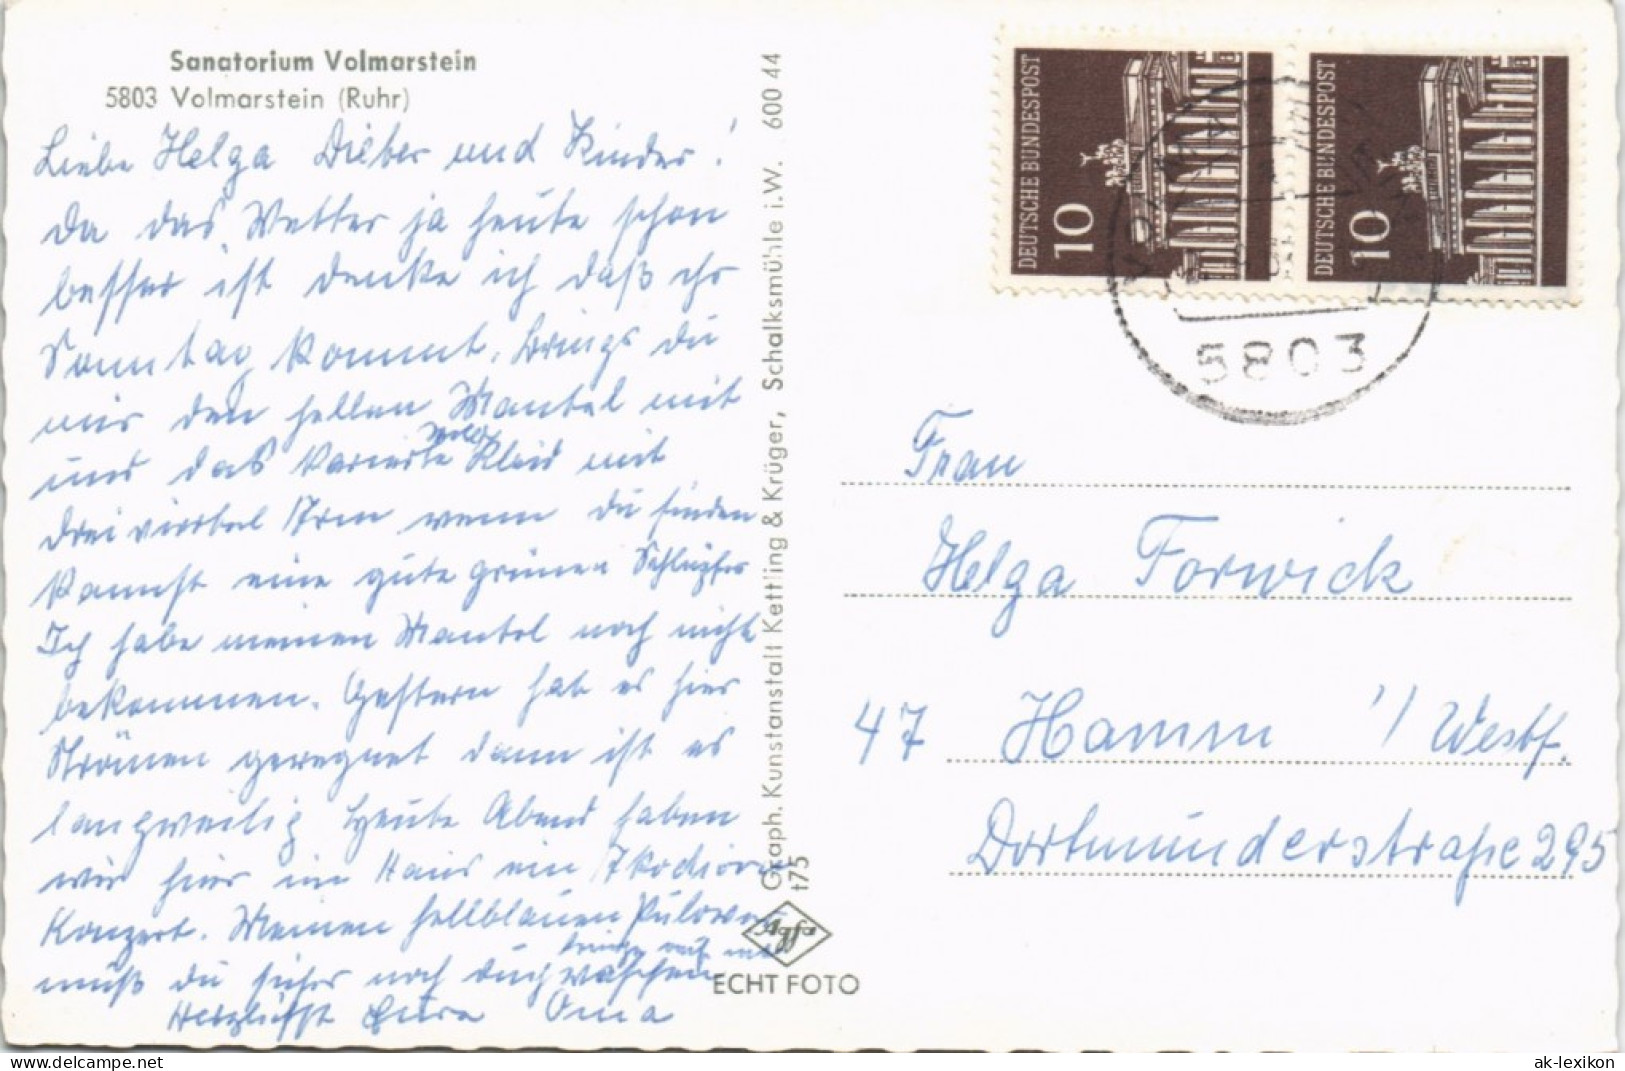 Sanatorium Volmarstein
5803 Volmarstein (Ruhr)
Liebe Helga Dieter und Kinder!
da das Wetter ja heute schon
besser ist denke ich daß ihr
Sonntag kommt. bringe du
mir den hellen Mantel mit
und das karierte Kleid mit
dreiviertel Arm wenn du finden
kannst eine gute grünen Schlüpfer
Ich habe meinen Mantel noch nicht
bekommen. Gestern hat es hier
Strömen geregnet dann ist es
langweilig Heute Abend haben
wir hier im Haus ein Akodion
Konzert. Meinen hellblauen Pulover
bringe mit
muß du sicher noch durchwaschen
Herzlichst Eure Oma
Graph. Kunstanstalt Kettling & Krüger, Schalksmühle i.W. 600 44
t75
Agfa
ECHT FOTO
DEUTSCHE BUNDESPOST
10
DEUTSCHE BUNDESPOST
10
5803
Frau
Helga Forwick
47 Hamm 1/ Westf.
Dortmunderstraße 295
https://www.delcampe.net
ak-lexikon